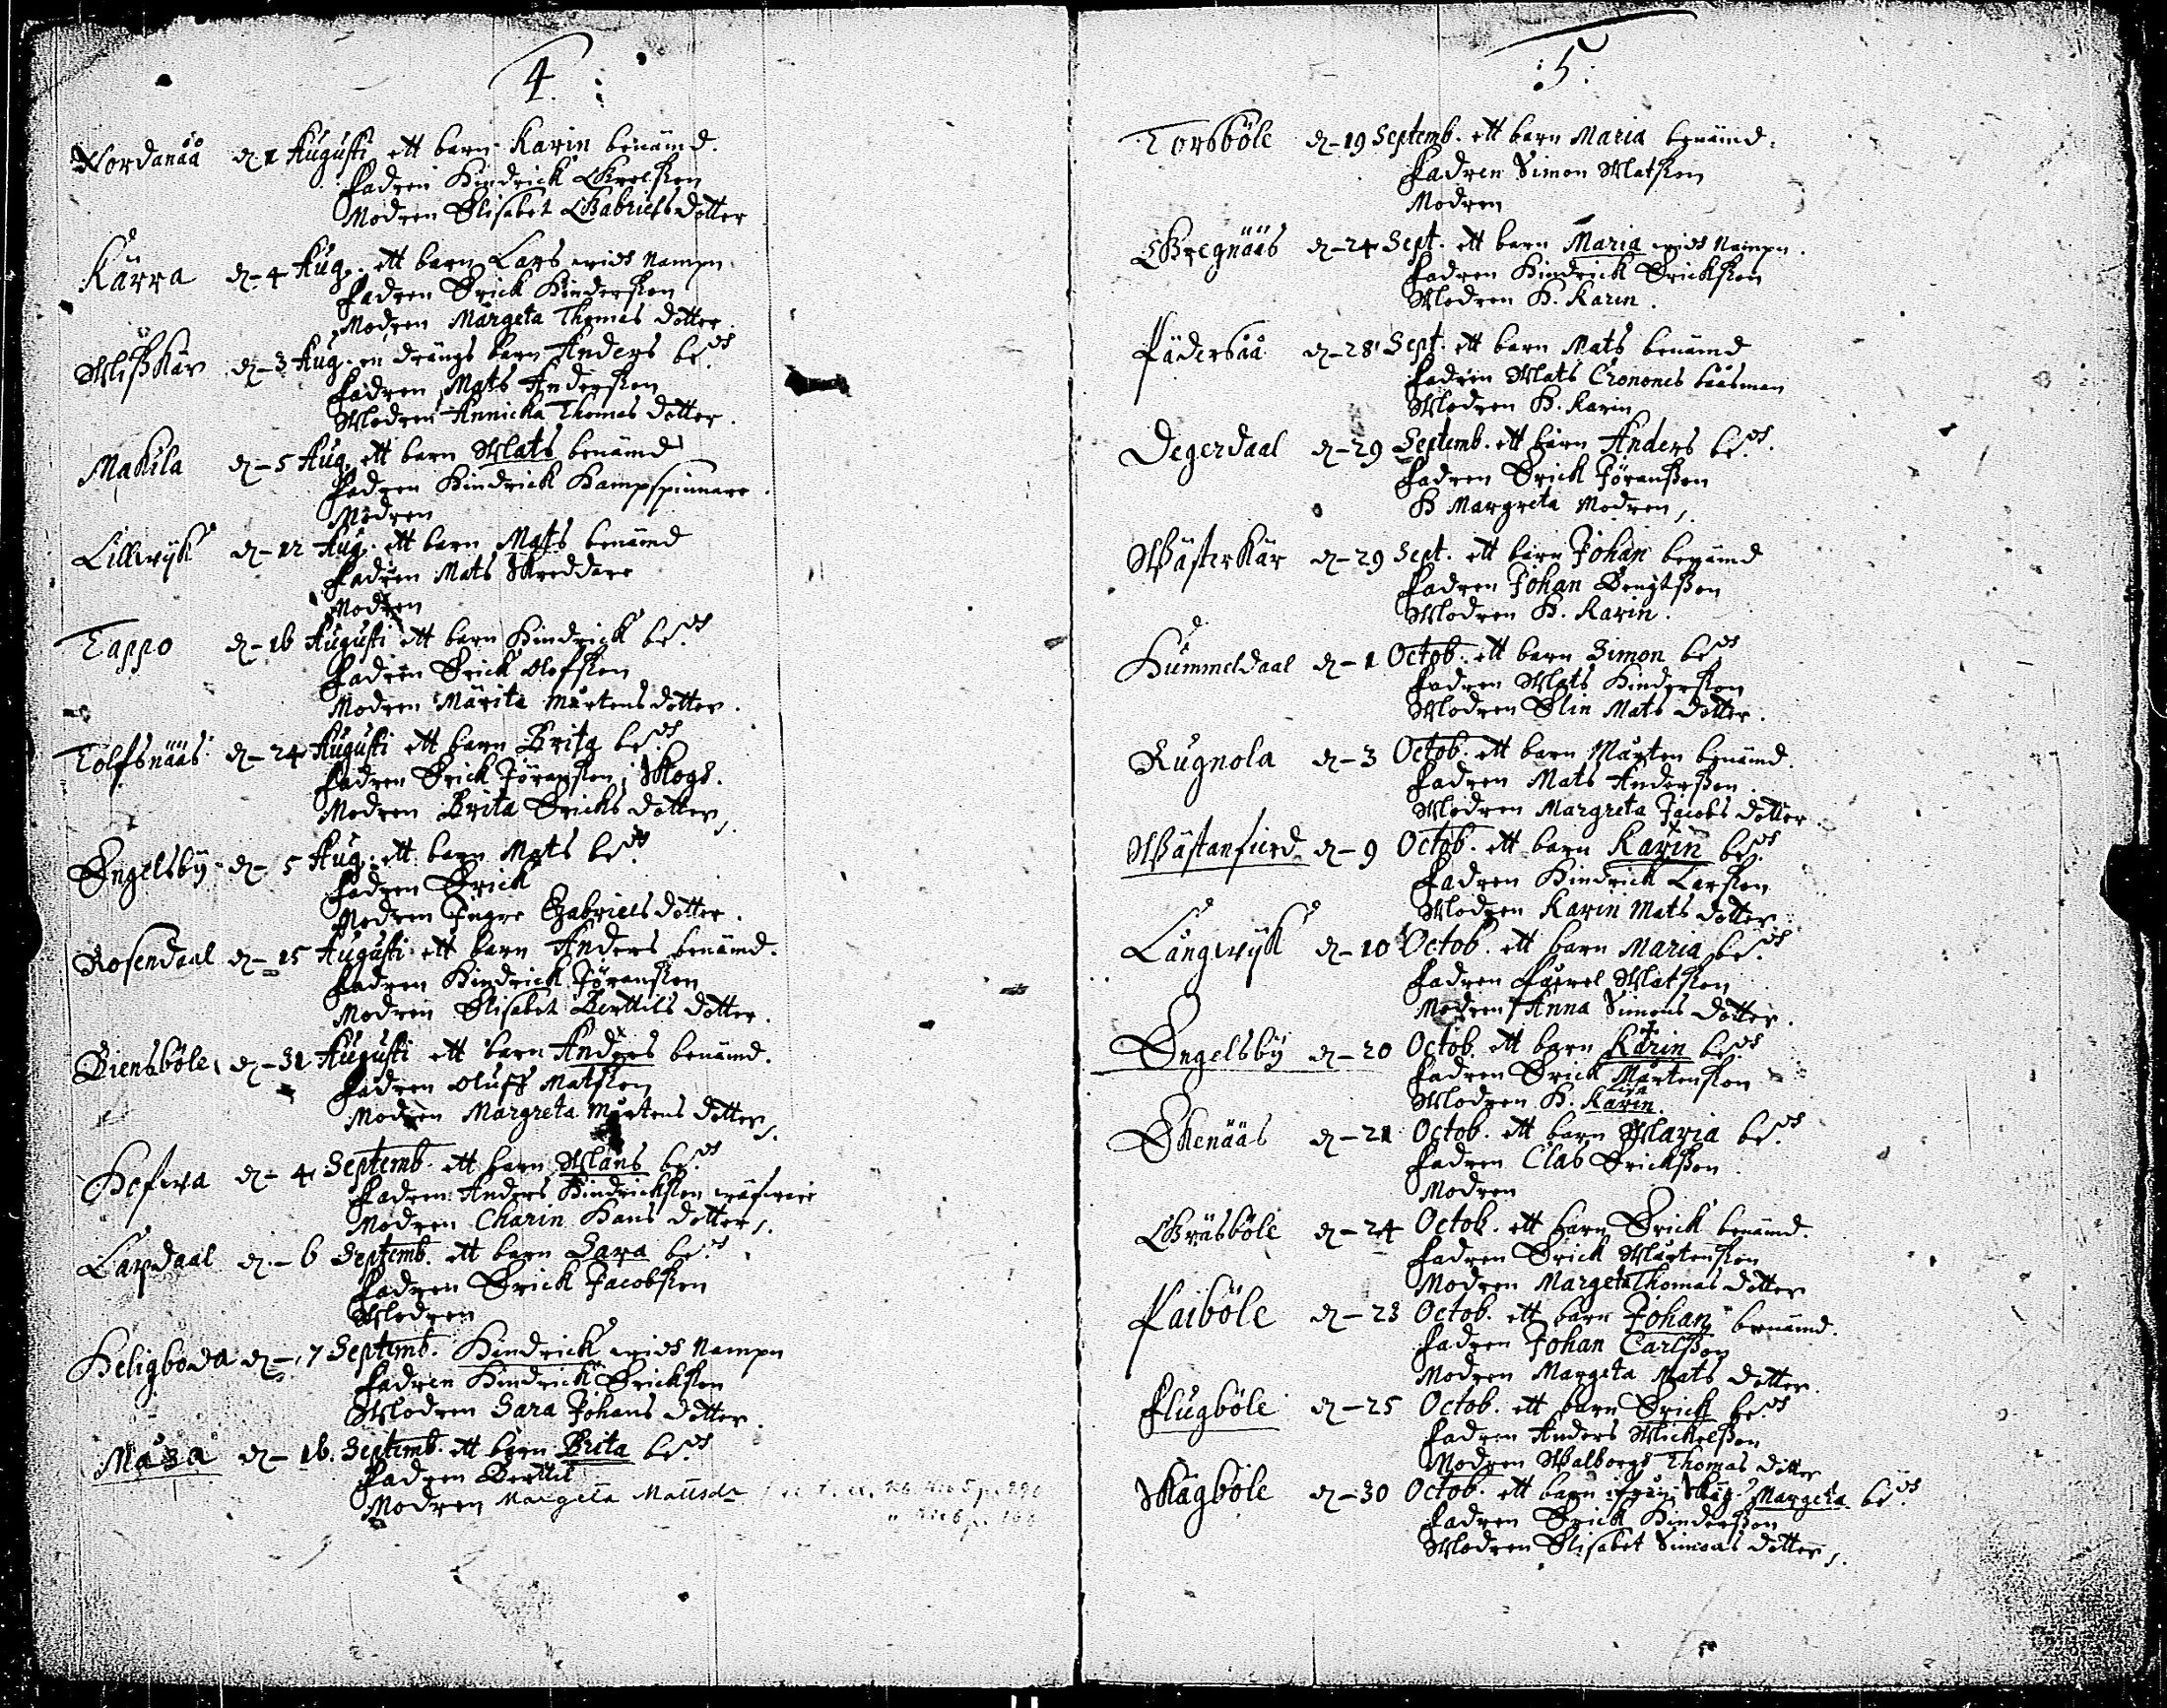 4
Nordanåå d. 1 Augusti ett barn Karin benämd.
Fadren Hindrick Grelsson
Modren Elisabet Gabriels dotter
Kårra d. 4 Aug. ett barn Lars wids Nampn
Fadren Erick Hindersson
Modren Margeta Thomas dotter.
Misskär d. 3 Aug. en drängs barn Anders be:dh
Fadren Mats Andersson
Modren Annicka Thomas dotter.
Makila d. 5 Aug. ett barn Mats benämd
Fadren Hindrick Hampspinnare.
Modren
Lillwyk d. 12 Aug. ett barn Mats benämd
Fadren Mats Skreddare
Modren
Tappo d. 16 Augusti ett barn Hindrick be:dh
Fadren Erick Olofsson
Modren Märita Mårtens dotter.
Tolfsnääs d. 24 Augusti ett barn Brita be:dh
Fadren Erick Jöransson, Skogs.
Modren Brita Ericks dotter,
Engelsby d. 5 Aug. ett barn Mats be:dh
Fadren Erick
Modren Ingre Gabriels dotter.
Rosendaal d. 15 Augusti ett barn Anders benämd.
Fadren Hindrick Jöransson
Modren Elisabet Berttils dotter.
Biensböle, d. 31 Augusti ett barn Anders benämd.
Fadren Oluff Matsson
Modren Margreta Mårtens dotter,
Hofwa d. 4 Septemb. ett barn Måns be:dh
Fadren Anders Hindricksson
Modren Charin Hans dotter,.
Lardaal d. 6 Septemb. ett barn Sara be:dh
Fadren Erick Jacobsson
Modren
Heligboda d. 7 Septemb. Hindrick wids Nampn
Fadren Hindrick Ericksson
Modren Sara Johans dotter.
Måsa d. 16. Septemb. ett barn Brita be:dh
Fadren Berttil
Modren Margeta Mattsdr
5
Torsböle d. 19 Septemb. ett barn Maria benämd.
Fadren Simon Matsson
Modren
Gregnääs d. 24 Sept. ett barn Maria wids Nampn.
Fadren Hindrick Ericksson
Modren H. Karin.
Pädersåå d. 28 Sept. ett barn Mats benämd
Fadren Mats Cronones båásman
Modren H. Karin
Degerdaal d. 29 Septemb. ett barn Anders be:dh
Fadren Erick Jöransson
H Margreta Modren,.
Wästerkär d. 29 Sept. ett barn Johan benämd
Fadren Johan Bengtsson
Modren H. Karin.
Hummeldaal d. 1 Octob. ett barn Simon be:dh
Fadren Mats Hindersson
Modren Elin Mats dotter.
Rugnola d. 3 Octob. ett barn Mårten benämd.
Fadren Mats Andersson.
Modren Margreta Jacobs dotter
Wästanfierd d. 9 Octob. ett barn Karin be:dh
Fadren Hindrick Larsson
Modren Karin Mats dotter.
Långwyk d. 10 Octob. ett barn Maria be:dh
Fadren Påvel Matsson
Modren Anna Simons dotter.
Engelsby d. 20 Octob. ett barn Karin be:dh
Fadren Erick Mårtensson
Modren H. Karin.
Ekenääs d. 21 Octob. ett barn Maria be:dh
Fadren Clas Ericksson.
Modren
Gräsböle d. 24 Octob. ett barn Erick benämd.
Fadren Erick Mårtensson
Modren Margeta Thomas dotter
Paiböle d. 23 Octob. ett barn Johan benämd.
Fadren Johan Carlsson
Modren Margeta Mats dotter.
Flugböle d. 25 Octob. ett barn Erick be:dh
Fadren Anders Mickelsson
Modren Walborg Thomas dotter
Skagböle d. 30 Octob. ett barn Margeta be:dh
Fadren Erick Hindersson
Modren Elisabet Simons dotter,.